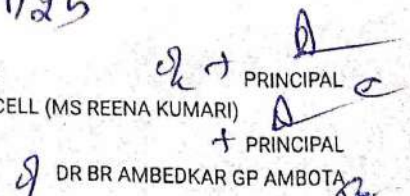 PRINCIPAL
CELL (MS REENA KUMARI)
+ PRINCIPAL
DR BR AMBEDKAR GP AMBOTA